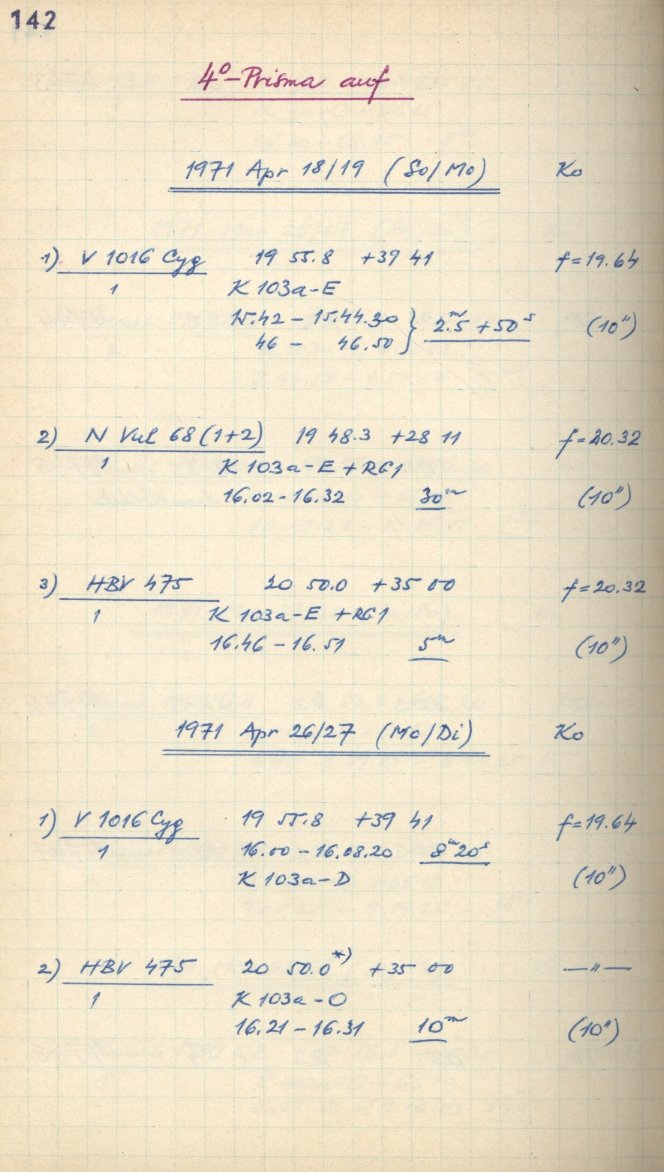 142
4°-Prisma auf
1971 Apr 18/19 (So/Mo) Ko
1) V 1016 Cyg 19 55.8 +39 41 f=19.64
1 K 103a-E
15.42 – 15.44.30 } 2.ᵐ5 + 50ˢ (10")
46 – 46.50
2) N Vul 68 (1+2) 19 48.3 +28 11 f=20.32
1 K 103a-E + RG1
16.02 - 16.32 30ᵐ (10")
3) HBV 475 20 50.0 +35 00 f=20.32
1 K 103a-E + RG1
16.46 – 16.51 5ᵐ (10")
1971 Apr 26/27 (Mo/Di) Ko
1) V 1016 Cyg 19 55.8 +39 41 f=19.64
1 16.00 – 16.08.20 8ᵐ20ˢ
K 103a-D (10")
2) HBV 475 20 50.0*) +35 00 —"—
1 K 103a-O
16.21 – 16.31 10ᵐ (10")